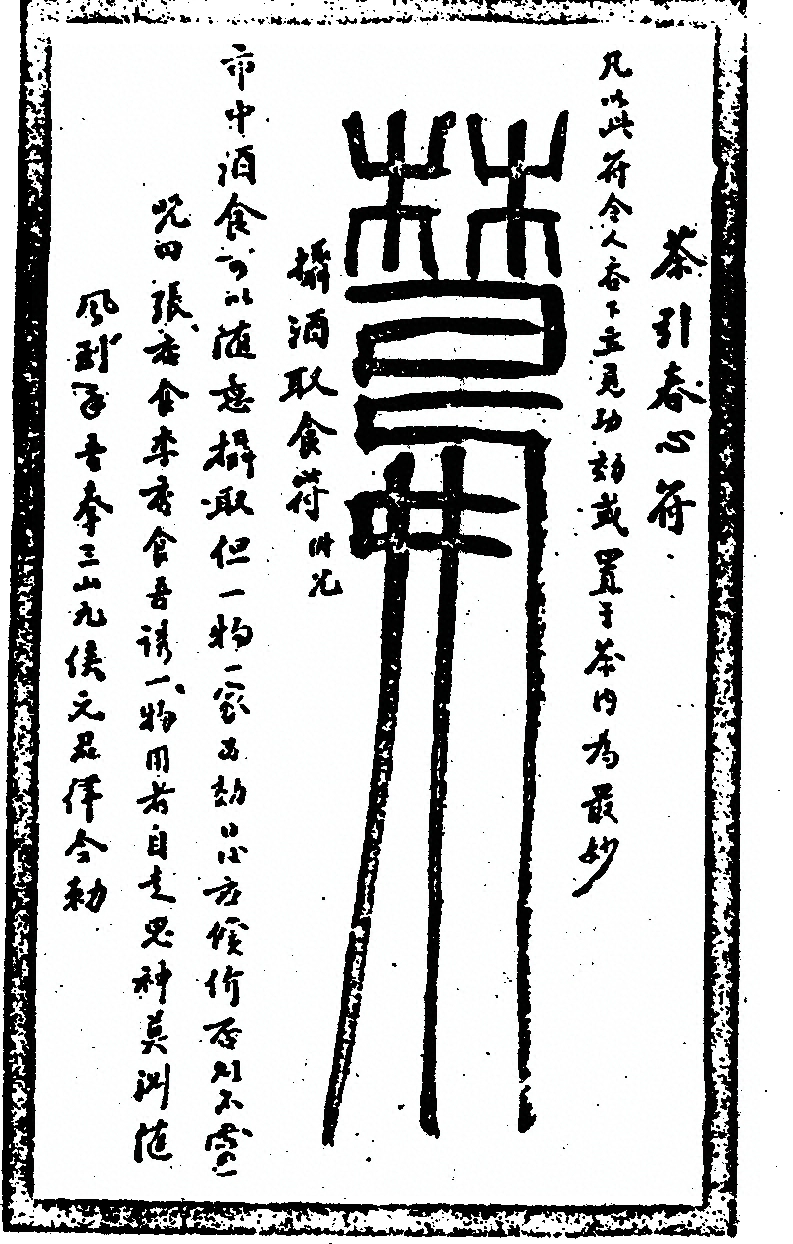 茶引春心符
凡以此符令人吞下立見功效或置于茶內為最妙
攝酒取食符 附咒
市中酒食可以隨意攝取但一物一家出効品各方償价否則不靈
咒曰 張 食來 食吾誘一物用者自走鬼神莫測隨
風到手吾奉三山九侯元君律令勅